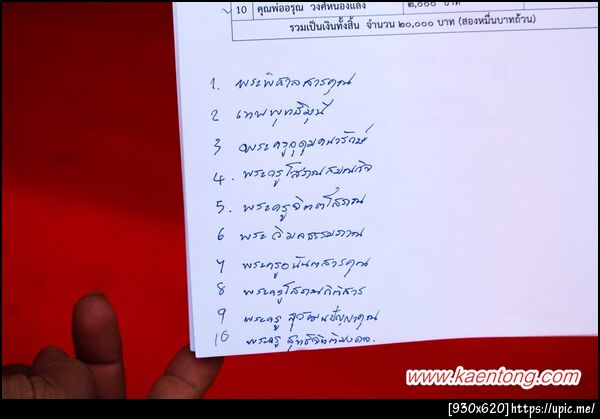 10 คุณพ่ออรุณ วงศ์หนองแล้ง ๒,๐๐๐ บาท
รวมเป็นเงินทั้งสิ้น จำนวน ๒๐,๐๐๐ บาท (สองหมื่นบาทถ้วน)
1. พระพิศาลสารคุณ
2 เทพพุทธิมุนี
3 พระครูอุดมคนารักษ์
4. พระครูโสภณสมณกิจ
5. พระครูจิตตโสภณ
6 พระวิมลธรรมภาณ
7 พระครูอนันตสารคุณ
8 พระครูโสภณกิติสาร
9 พระครู สุวัฒนปัญญาคุณ
10 พระครู สุทธิจิตติมงคล.
www.kaentong.com
[930x620]https://upic.me/